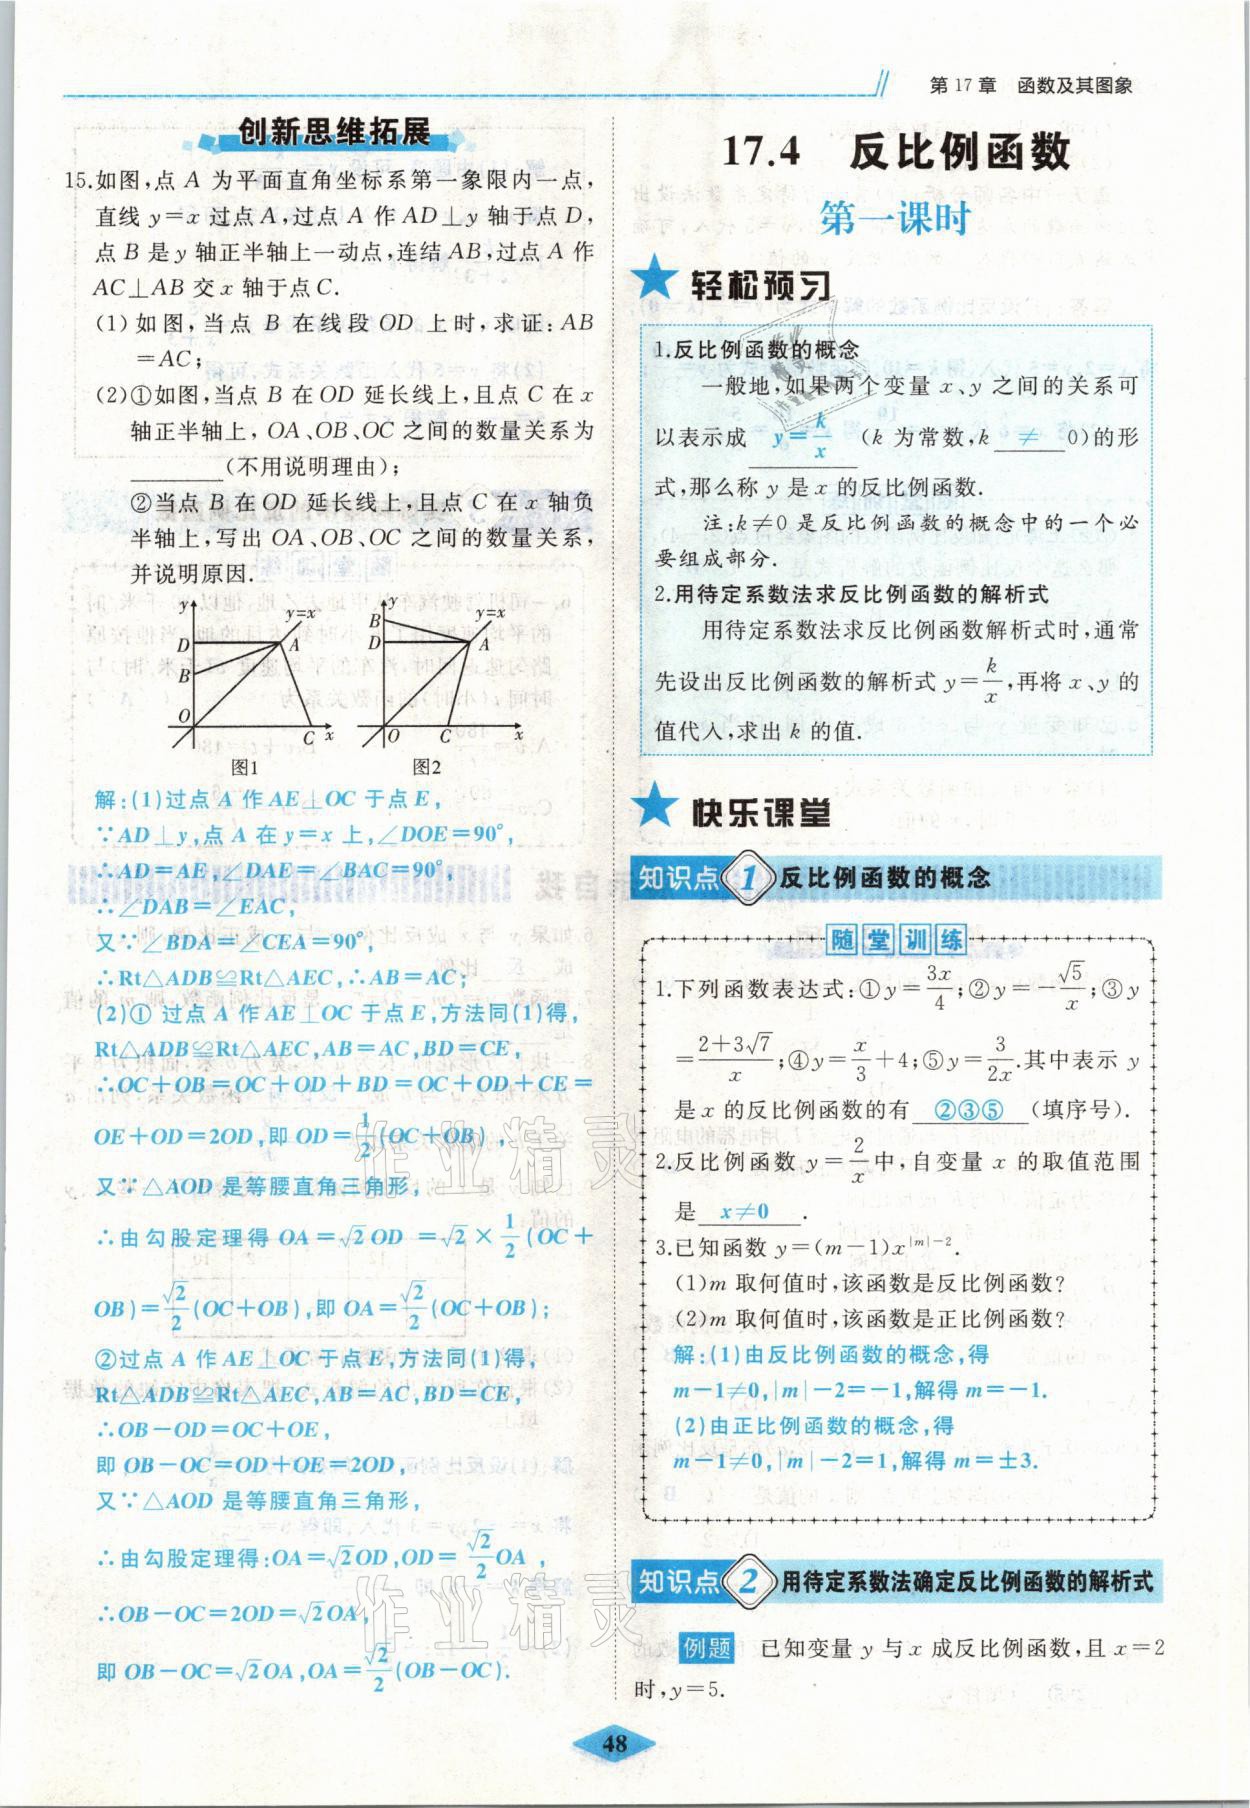 第17章 函数及其图象
创新思维拓展
15.如图,点A为平面直角坐标系第一象限内一点,
直线y=x过点A,过点A作AD⊥y轴于点D,
点B是y轴正半轴上一动点,连结AB,过点A作
AC⊥AB交x轴于点C.
(1)如图,当点B在线段OD上时,求证:AB
=AC;
(2)①如图,当点B在OD延长线上,且点C在x
轴正半轴上,OA、OB、OC之间的数量关系为
________(不用说明理由);
②当点B在OD延长线上,且点C在x轴负
半轴上,写出OA、OB、OC之间的数量关系,
并说明原因.
y y=x D A B O C x
图1
y y=x B D A O C x
图2
解:(1)过点A作AE⊥OC于点E,
∵AD⊥y,点A在y=x上,∠DOE=90°,
∴AD=AE,∠DAE=∠BAC=90°,
∴∠DAB=∠EAC,
又∵∠BDA=∠CEA=90°,
∴Rt△ADB≌Rt△AEC,∴AB=AC;
(2)①过点A作AE⊥OC于点E,方法同(1)得,
Rt△ADB≌Rt△AEC,AB=AC,BD=CE,
∴OC+OB=OC+OD+BD=OC+OD+CE=
OE+OD=2OD,即OD=1/2(OC+OB),
又∵△AOD是等腰直角三角形,
∴由勾股定理得OA=√2OD=√2×1/2(OC+
OB)=√2/2(OC+OB),即OA=√2/2(OC+OB);
②过点A作AE⊥OC于点E,方法同(1)得,
Rt△ADB≌Rt△AEC,AB=AC,BD=CE,
∴OB-OD=OC+OE,
即OB-OC=OD+OE=2OD,
又∵△AOD是等腰直角三角形,
∴由勾股定理得:OA=√2OD,OD=√2/2OA,
∴OB-OC=2OD=√2OA,
即OB-OC=√2OA,OA=√2/2(OB-OC).
17.4 反比例函数
第一课时
轻松预习
1.反比例函数的概念
一般地,如果两个变量x、y之间的关系可
以表示成 y=k/x (k为常数,k ≠ 0)的形
式,那么称y是x的反比例函数.
注:k≠0是反比例函数的概念中的一个必
要组成部分.
2.用待定系数法求反比例函数的解析式
用待定系数法求反比例函数解析式时,通常
先设出反比例函数的解析式y=k/x,再将x、y的
值代入,求出k的值.
快乐课堂
知识点 1 反比例函数的概念
随堂训练
1.下列函数表达式:①y=3x/4;②y=-√5/x;③y
=(2+3√7)/x;④y=x/3+4;⑤y=3/2x.其中表示y
是x的反比例函数的有 ②③⑤ (填序号).
2.反比例函数y=2/x中,自变量x的取值范围
是 x≠0 .
3.已知函数y=(m-1)x^|m|-2.
(1)m取何值时,该函数是反比例函数?
(2)m取何值时,该函数是正比例函数?
解:(1)由反比例函数的概念,得
m-1≠0,|m|-2=-1,解得m=-1.
(2)由正比例函数的概念,得
m-1≠0,|m|-2=1,解得m=±3.
知识点 2 用待定系数法确定反比例函数的解析式
例题 已知变量y与x成反比例函数,且x=2
时,y=5.
48
作业精灵
作业精灵